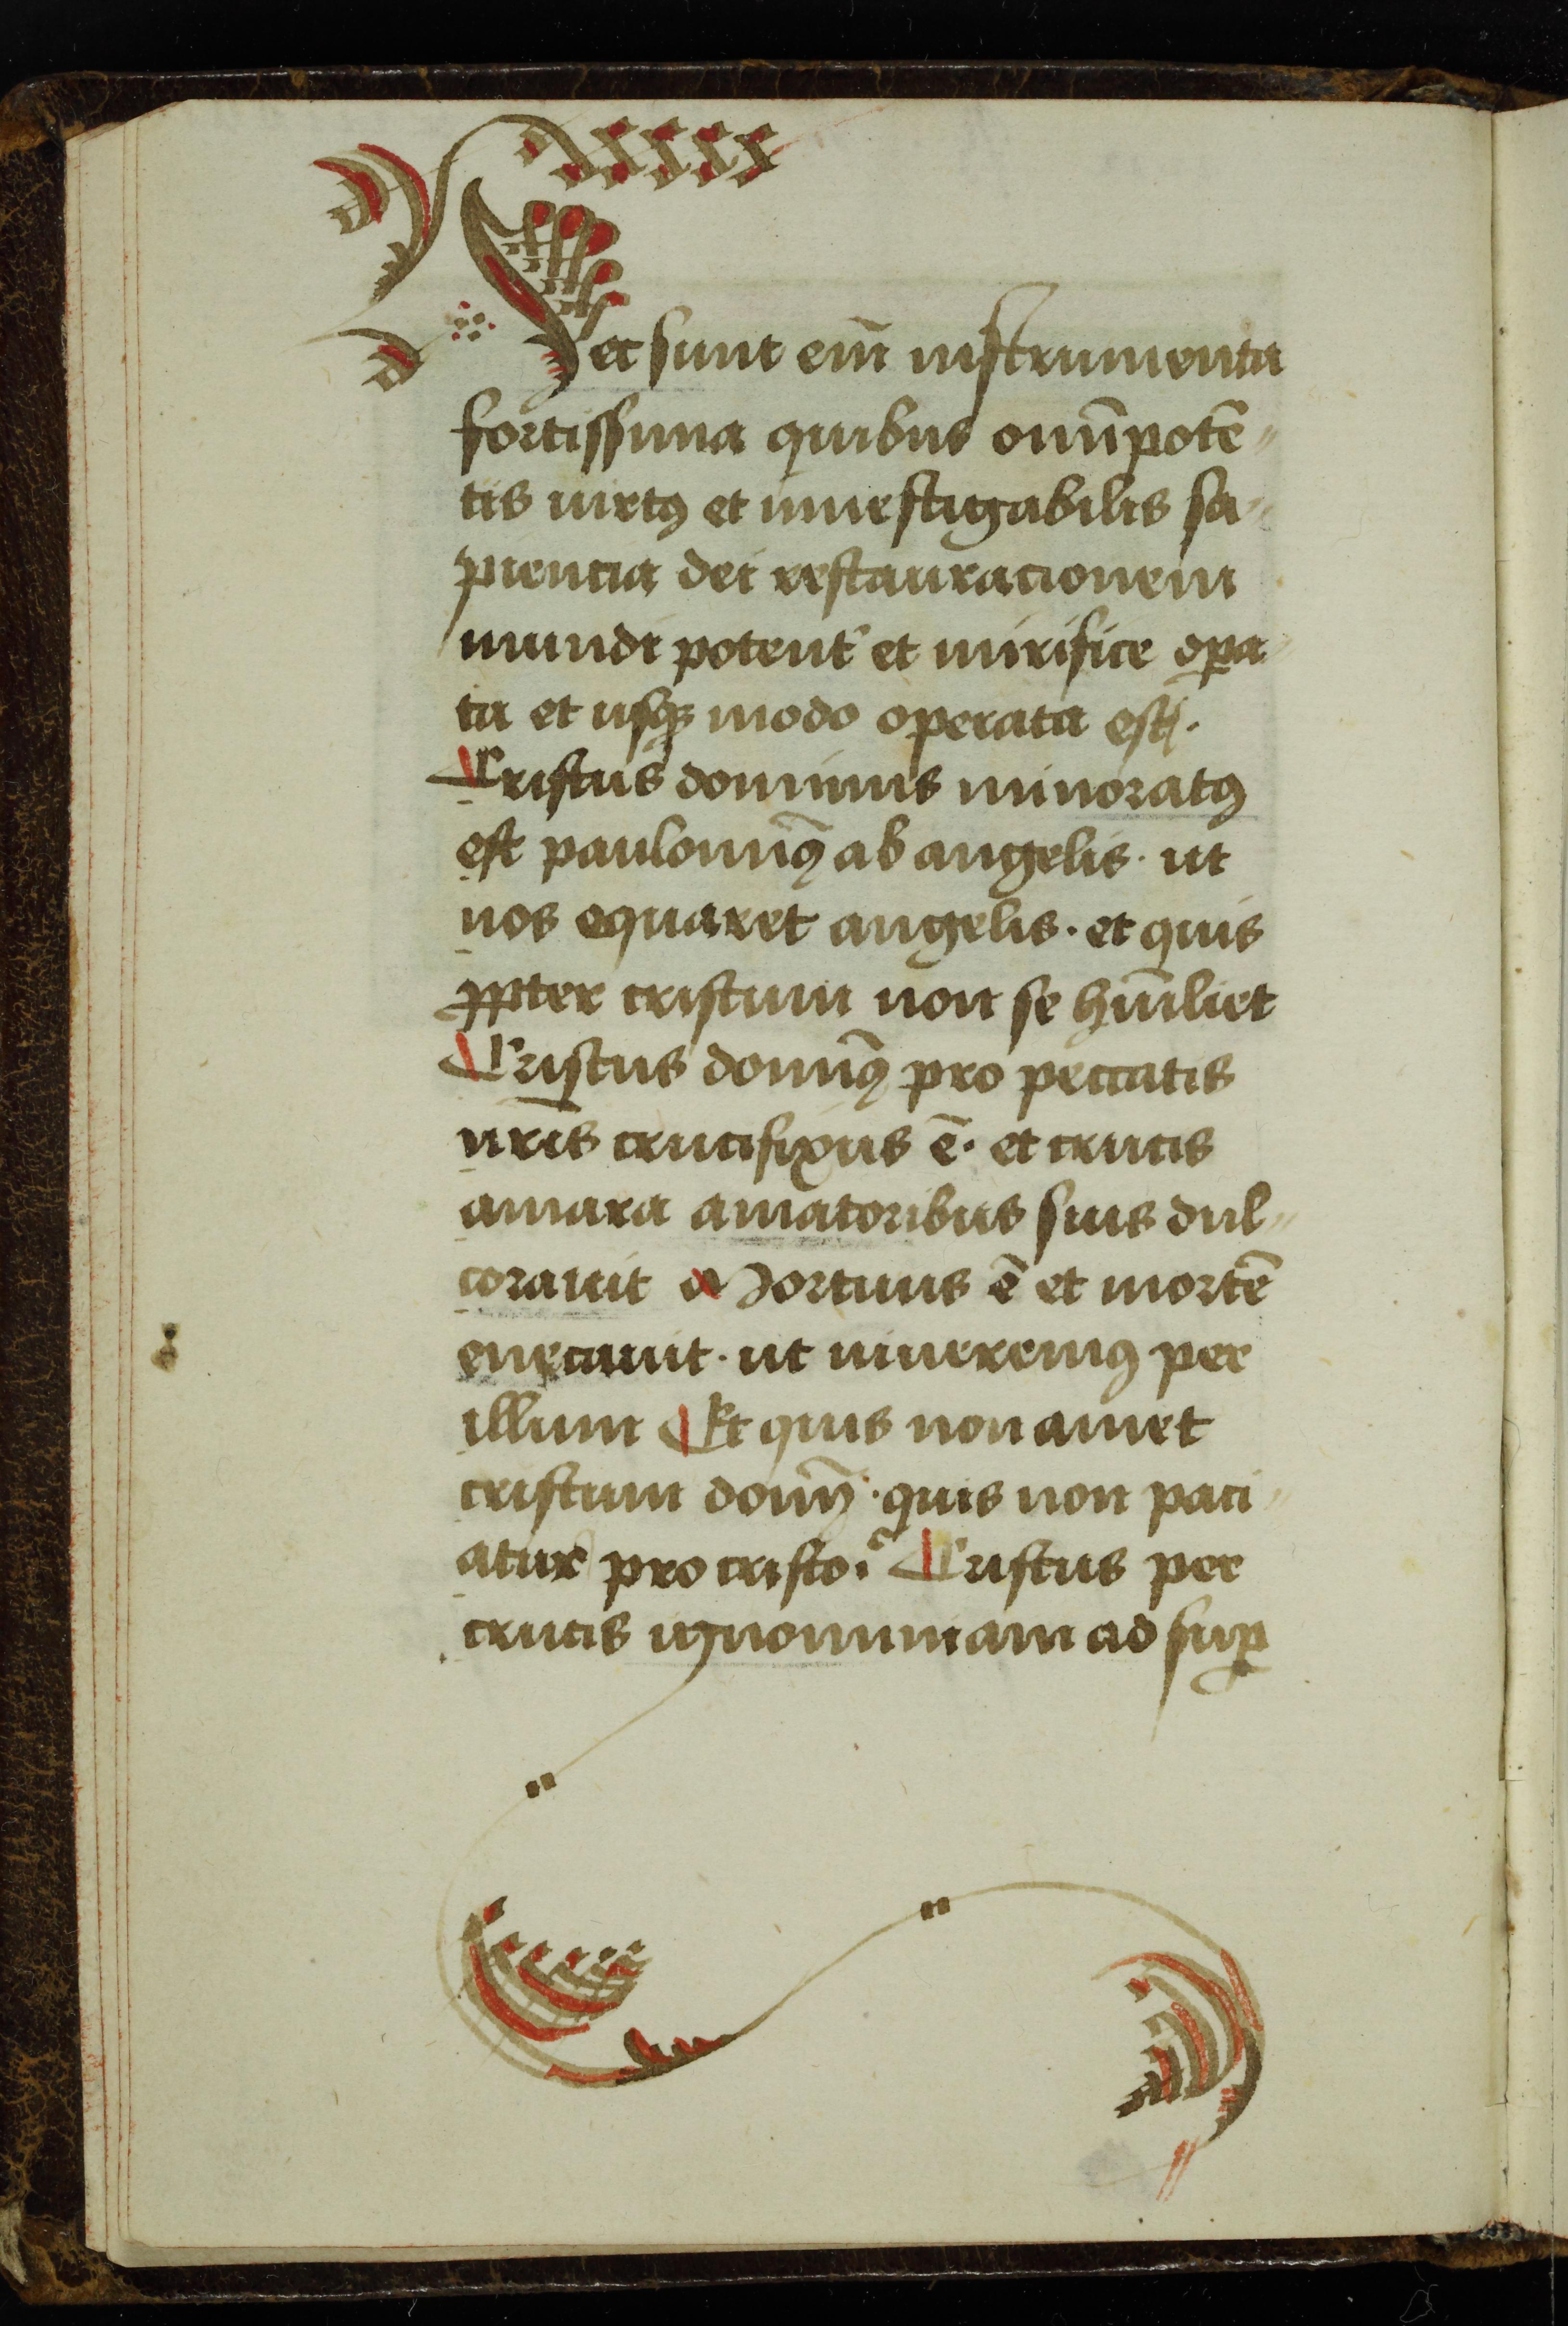 Hec sunt em̄ instrumenta
fortissima quibus omīpotē„
tis uirtꝰ et inuestigabilis sa„
piencia dei restauracionem
mundi potent᷑ et mirifice oꝑa„
ta et usqꝫ modo operata est.
Cristus dominus minoratꝰ
est paulominꝰ ab angelis · ut
nos equaret angelis · et quis
ꝓpter cristum non se hūiliet
Cristus domīꝰ pro peccatis
nr̄is crucifixus ē · et crucis
amara amatoribus suis dul„
corauit Mortuus ē et mortē
enecauit · ut uiueremꝰ per
illum Et quis non amet
cristum domī · quis non paci„
atur pro cristo? Cristus per
crucis ignominiam ad suꝑ